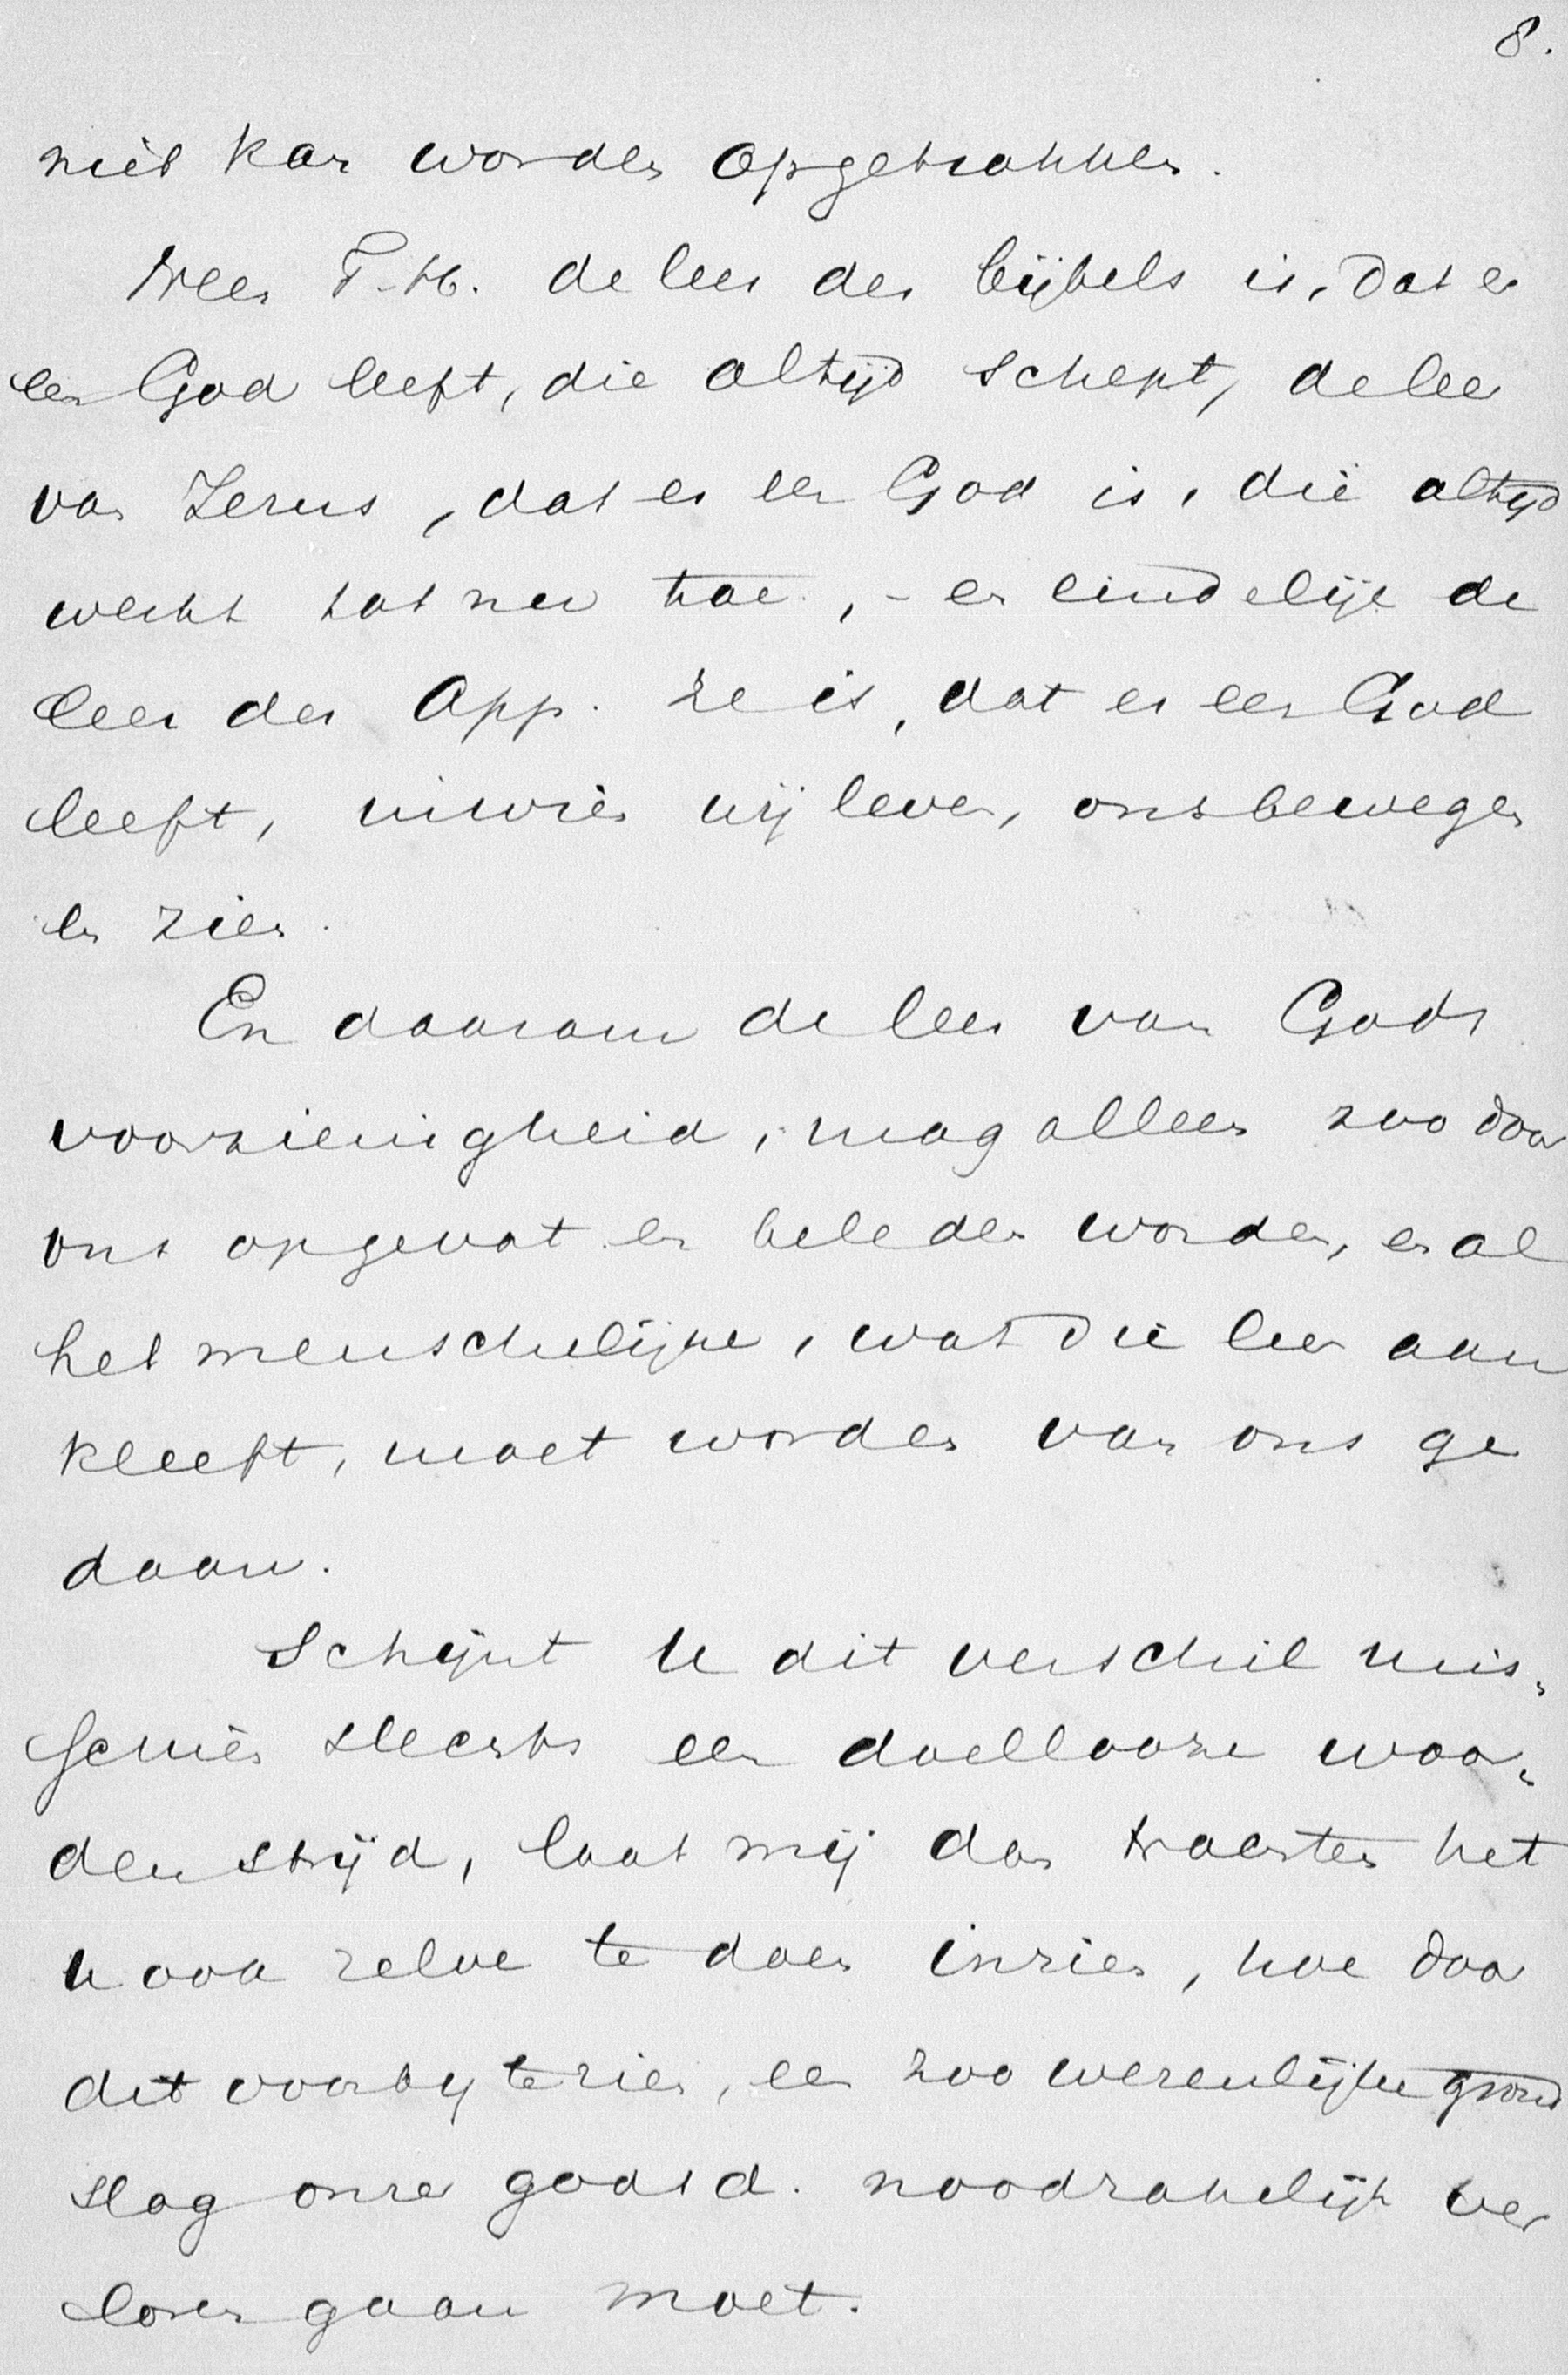 8.
niet kan worden opgetrokken.
Neen T. H. de leer des bijbels is, dat er
een God leeft, die altijd schept, de leer
van Jezus, dat er een God is, die altijd
werkt tot nu toe, - en eindelijk de
leer der App. ze is, dat er een God
leeft, in wien wij leven, ons bewegen
en zien.
En daarom de leer van Gods
voorzienigheid, mag alleen zoo door
ons opgevat en beleden worden, en al
het menschelijke, wat die leer aan
kleeft, moet worden van ons ge
daan.
Schijnt U dit verschil mis„
schien slechts een doellooze woor„
denstrijd, laat mij dan trachten het
U voor zelve te doen inzien, hoe door
dit voorby te zien, een zoo wezenlijke grond
slag onzer godsd. noodzakelijk ver
loren gaan moet.